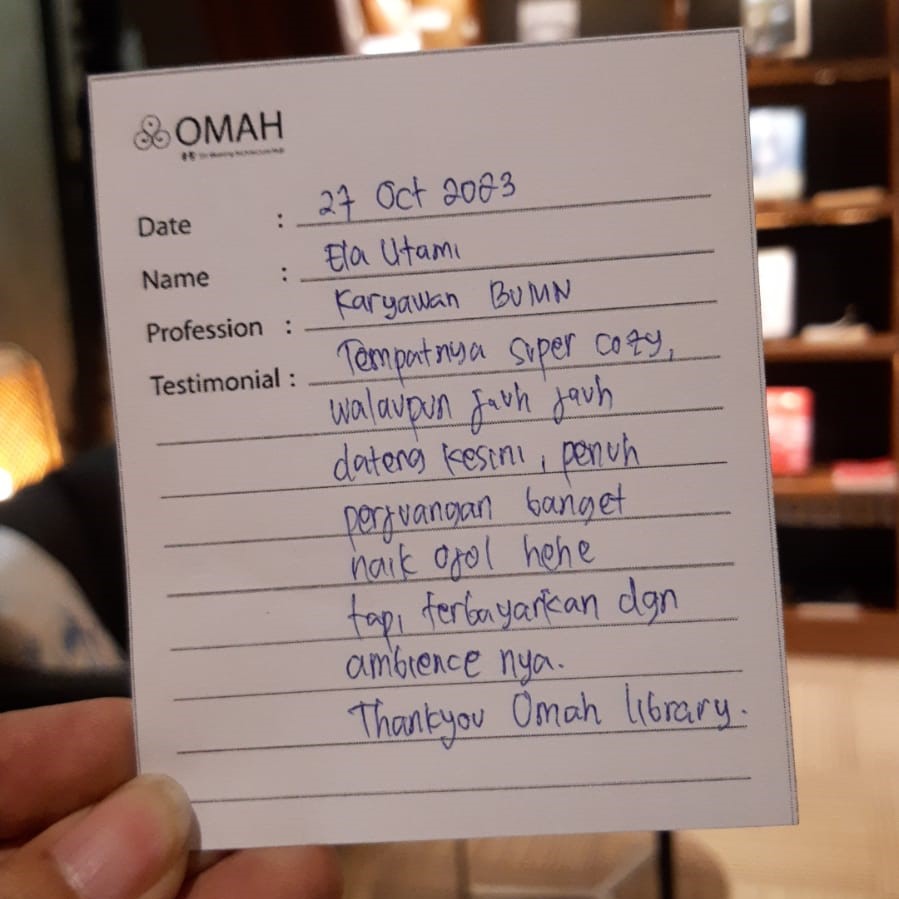 OMAH
Date : 27 Oct 2023
Name : Ela Utami
Profession : Karyawan BUMN
Testimonial : Tempatnya super cozy,
walaupun jauh jauh
dateng kesini, penuh
perjuangan banget
naik ojol hehe
tapi terbayarkan dgn
ambience nya.
Thankyou Omah library.